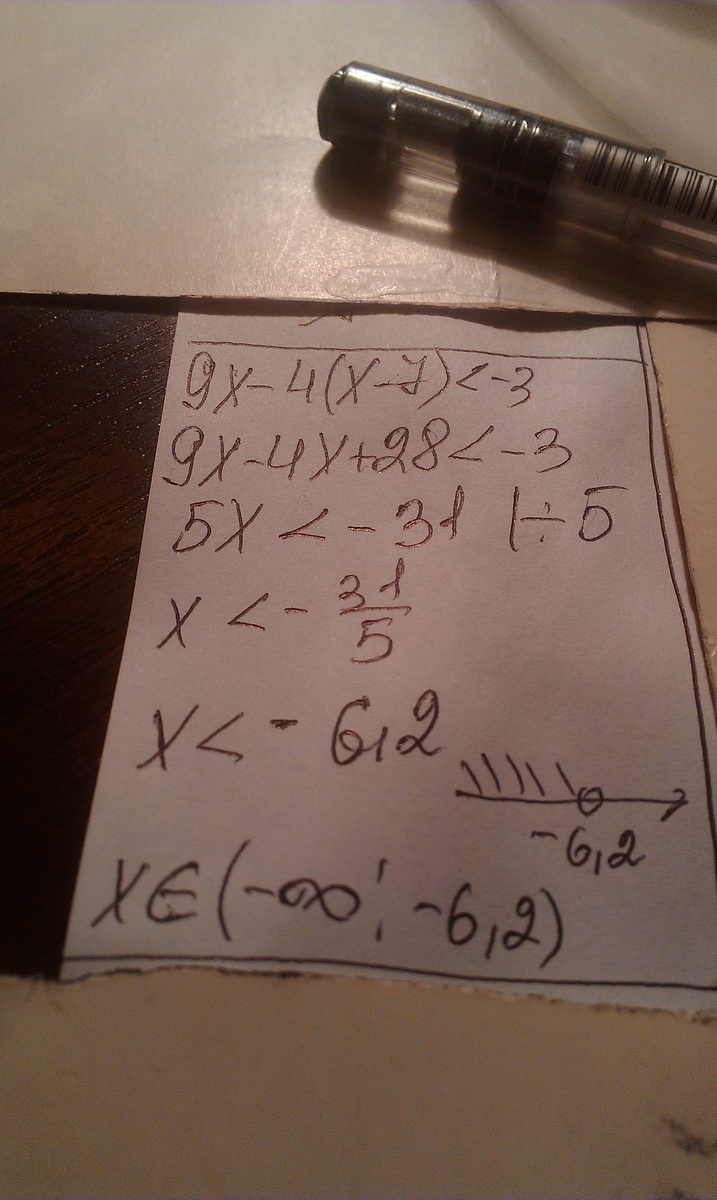 9x-4(x-7)<-3
9x-4x+28<-3
5x<-31 |÷5
x<-31/5
x<-6,2
-6,2
x∈(-∞; -6,2)